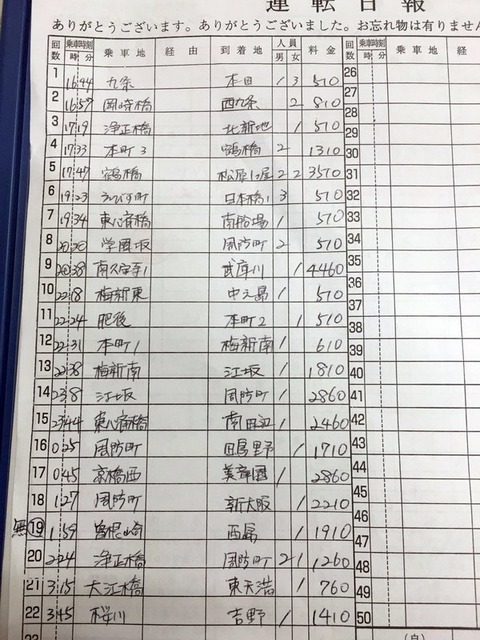 運転日報
ありがとうございます。ありがとうございました。お忘れ物は有りません
回数 乗車時刻 時 分 乗車地 経由 到着地 人員 男 女 料金 回数 乗車時刻 時 分 乗車地
1 16:44 九条 本田 1 3 510 26
2 16:57 岡崎橋 西九条 2 810 27
3 17:19 浄正橋 北新地 1 510 28
4 17:33 本町3 鶴橋 2 1310 29
5 17:47 鶴橋 2 2 3570 30
6 19:23 えびす町 日本橋1 3 510 31
7 19:34 東心斎橋 南船場 1 510 32
8 20:20 学園坂 周防町 2 570 33
9 20:38 南久宝寺1 武庫川 1 4460 34
10 22:18 梅新東 中之島 1 510 35
11 22:24 肥後 本町2 1 510 36
12 22:31 本町1 梅新南 1 610 37
13 22:38 梅新南 江坂 1 1810 38
14 23:81 江坂 周防町 2860 39
15 23:44 東心斎橋 南田辺 1 2460 40
16 0:25 周防町 1 1710 41
17 0:45 京橋西 美章園 1 2860 42
18 1:27 周防町 新大阪 1 2210 43
無 19 1:59 曽根崎 西島 1 1910 44
20 2:24 浄正橋 周防町 2 1 1260 45
21 3:15 大江橋 東天満 1 760 46
22 3:45 桜川 吉野 1 1410 47
48
49
50